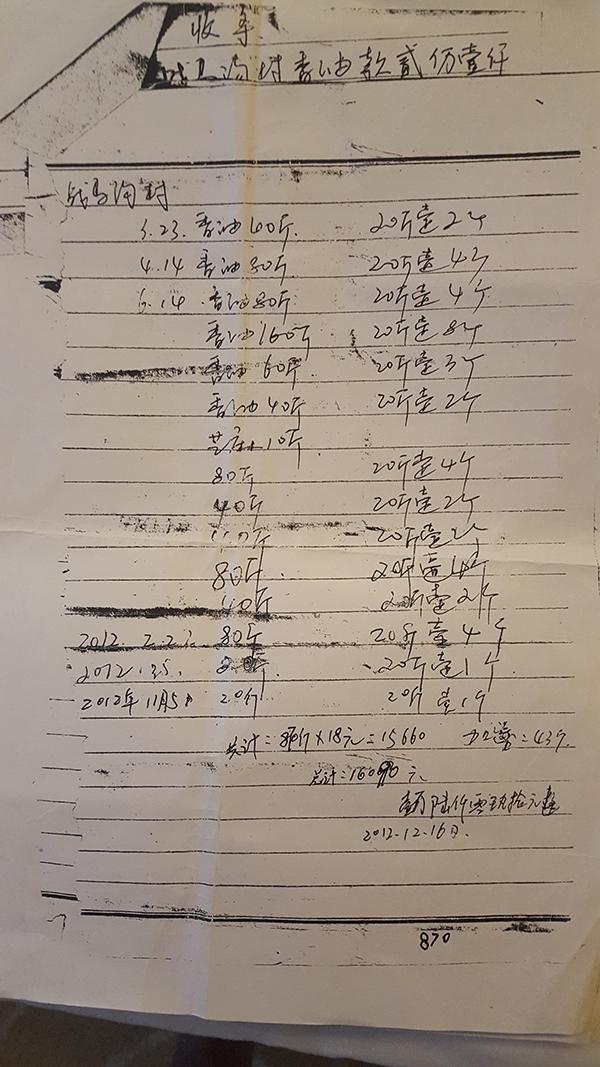 收条
香油款贰仟壹仟
3.23. 香油40斤. 20斤壹2个
4.14 香油80斤. 20斤壹4个
6.14 香油80斤. 20斤壹4个
香油160斤 20斤壹8个
香油60斤. 20斤壹3个
香油40斤 20斤壹2个
10斤
80斤 20斤壹4个
40斤 20斤壹2个
20斤壹2个
80斤. 20斤壹4个
40斤 20斤壹2个
2012. 2.2 80斤 20斤壹4个
2012. 20斤壹1个
2012年11月5日 20斤 20斤壹1个
共计=870斤×18元=15660 = 43个.
总计=16090元
陆仟零玖拾元整
2012.12.16日.
870